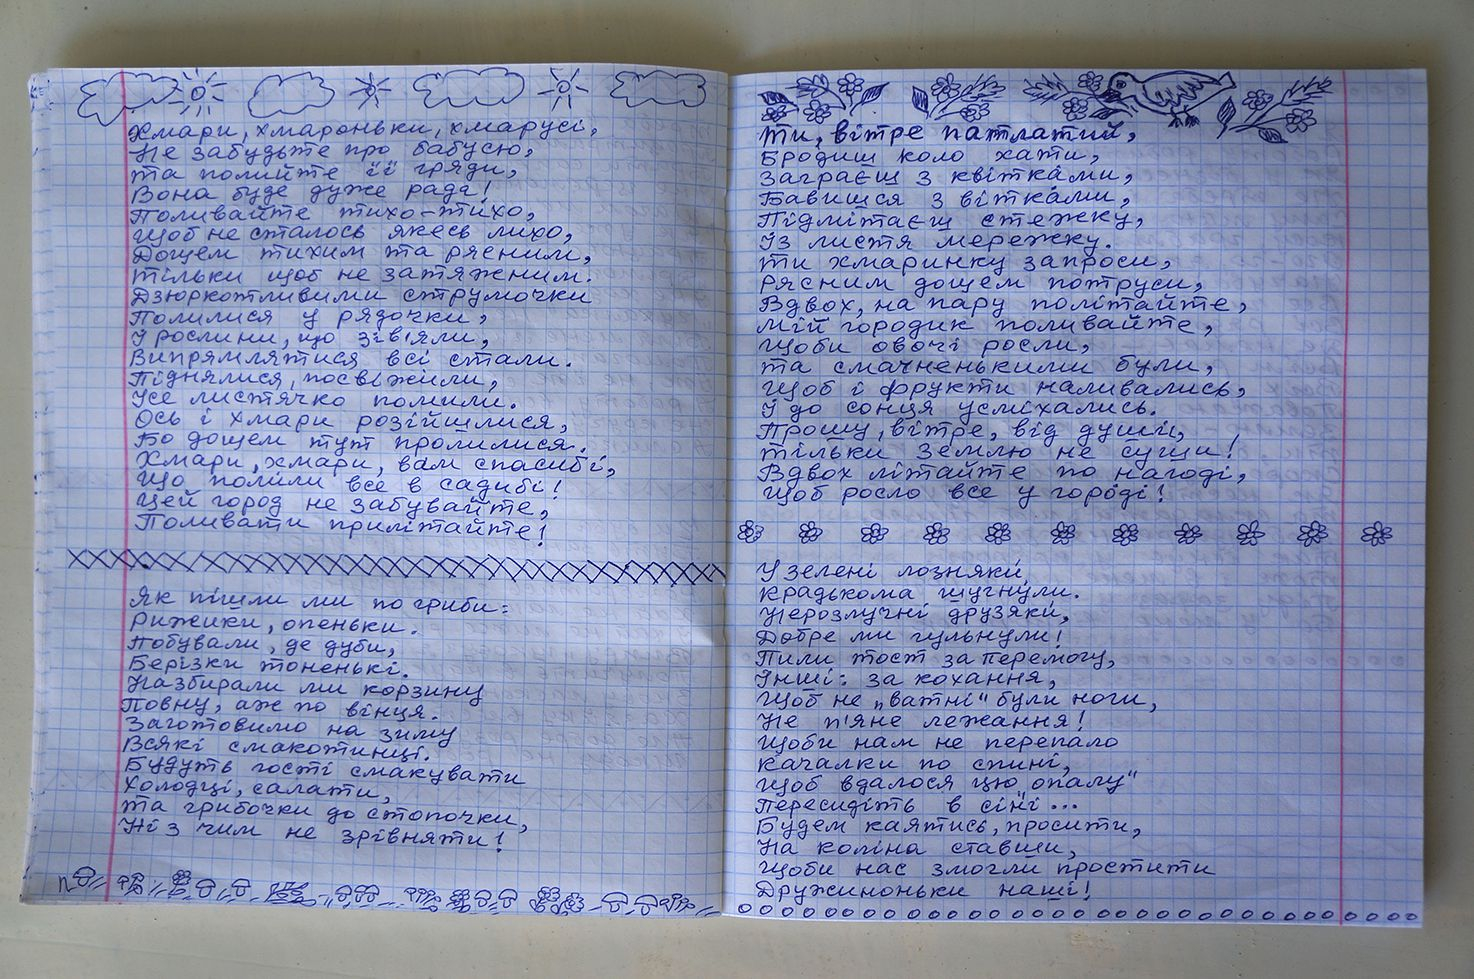 Хмари, хмароньки, хмарусі,
Не забудьте про бабусю,
Та полийте її гряди,
Вона буде дуже рада!
Поливайте тихо-тихо,
Щоб не сталось якесь лихо,
Дощем тихим та рясним,
Тільки щоб не затяжним.
Дзюркотливими струмочки
Полилися у рядочки,
І рослини, що зів'яли,
Випрямлятися всі стали.
Піднялися, посвіжили,
Усе листячко помили.
Ось і хмари розійшлися,
Бо дощем тут пролилися.
Хмари, хмари, вам спасибі,
Що полили все в садибі!
Цей город не забувайте,
Поливати прилітайте!
Як пішли ми по гриби:
Рижики, опеньки.
Побували, де дуби,
Берізки тоненькі.
Назбирали ми корзину
Повну, аж по вінця.
Заготовимо на зиму
Всякі смакотинці.
Будуть гості смакувати
Холодці, салати,
Та грибочки до стопочки,
Ні з чим не зрівняти!
Ти, вітре патлатий,
Бродиш коло хати,
Заграєш з квітками,
Бавишся з вітками,
Підмітаєш стежку,
Із листя мережку.
Ти хмаринку запроси,
Рясним дощем потруси,
Вдвох, на пару політайте,
Мій городик поливайте,
Щоби овочі росли,
Та смачненькими були,
Щоб і фрукти наливались,
І до сонця усміхались.
Прошу, вітре, від душі,
Тільки Землю не суши!
Вдвох літайте по нагоді,
Щоб росло все у городі!
У зелені лозняки
Крадькома шугнули.
Нерозлучні друзяки,
Добре ми гульнули!
Пили тост за Перемогу,
Інші: за кохання,
Щоб не „ватні" були ноги,
Не п'яне лежання!
Щоби нам не перепало
Качалки по спині,
Щоб вдалося цю „опалу"
Пересидіть в сіні...
Будем каятись, просити,
На коліна ставши,
Щоби нас змогли простити
Дружиноньки наші!